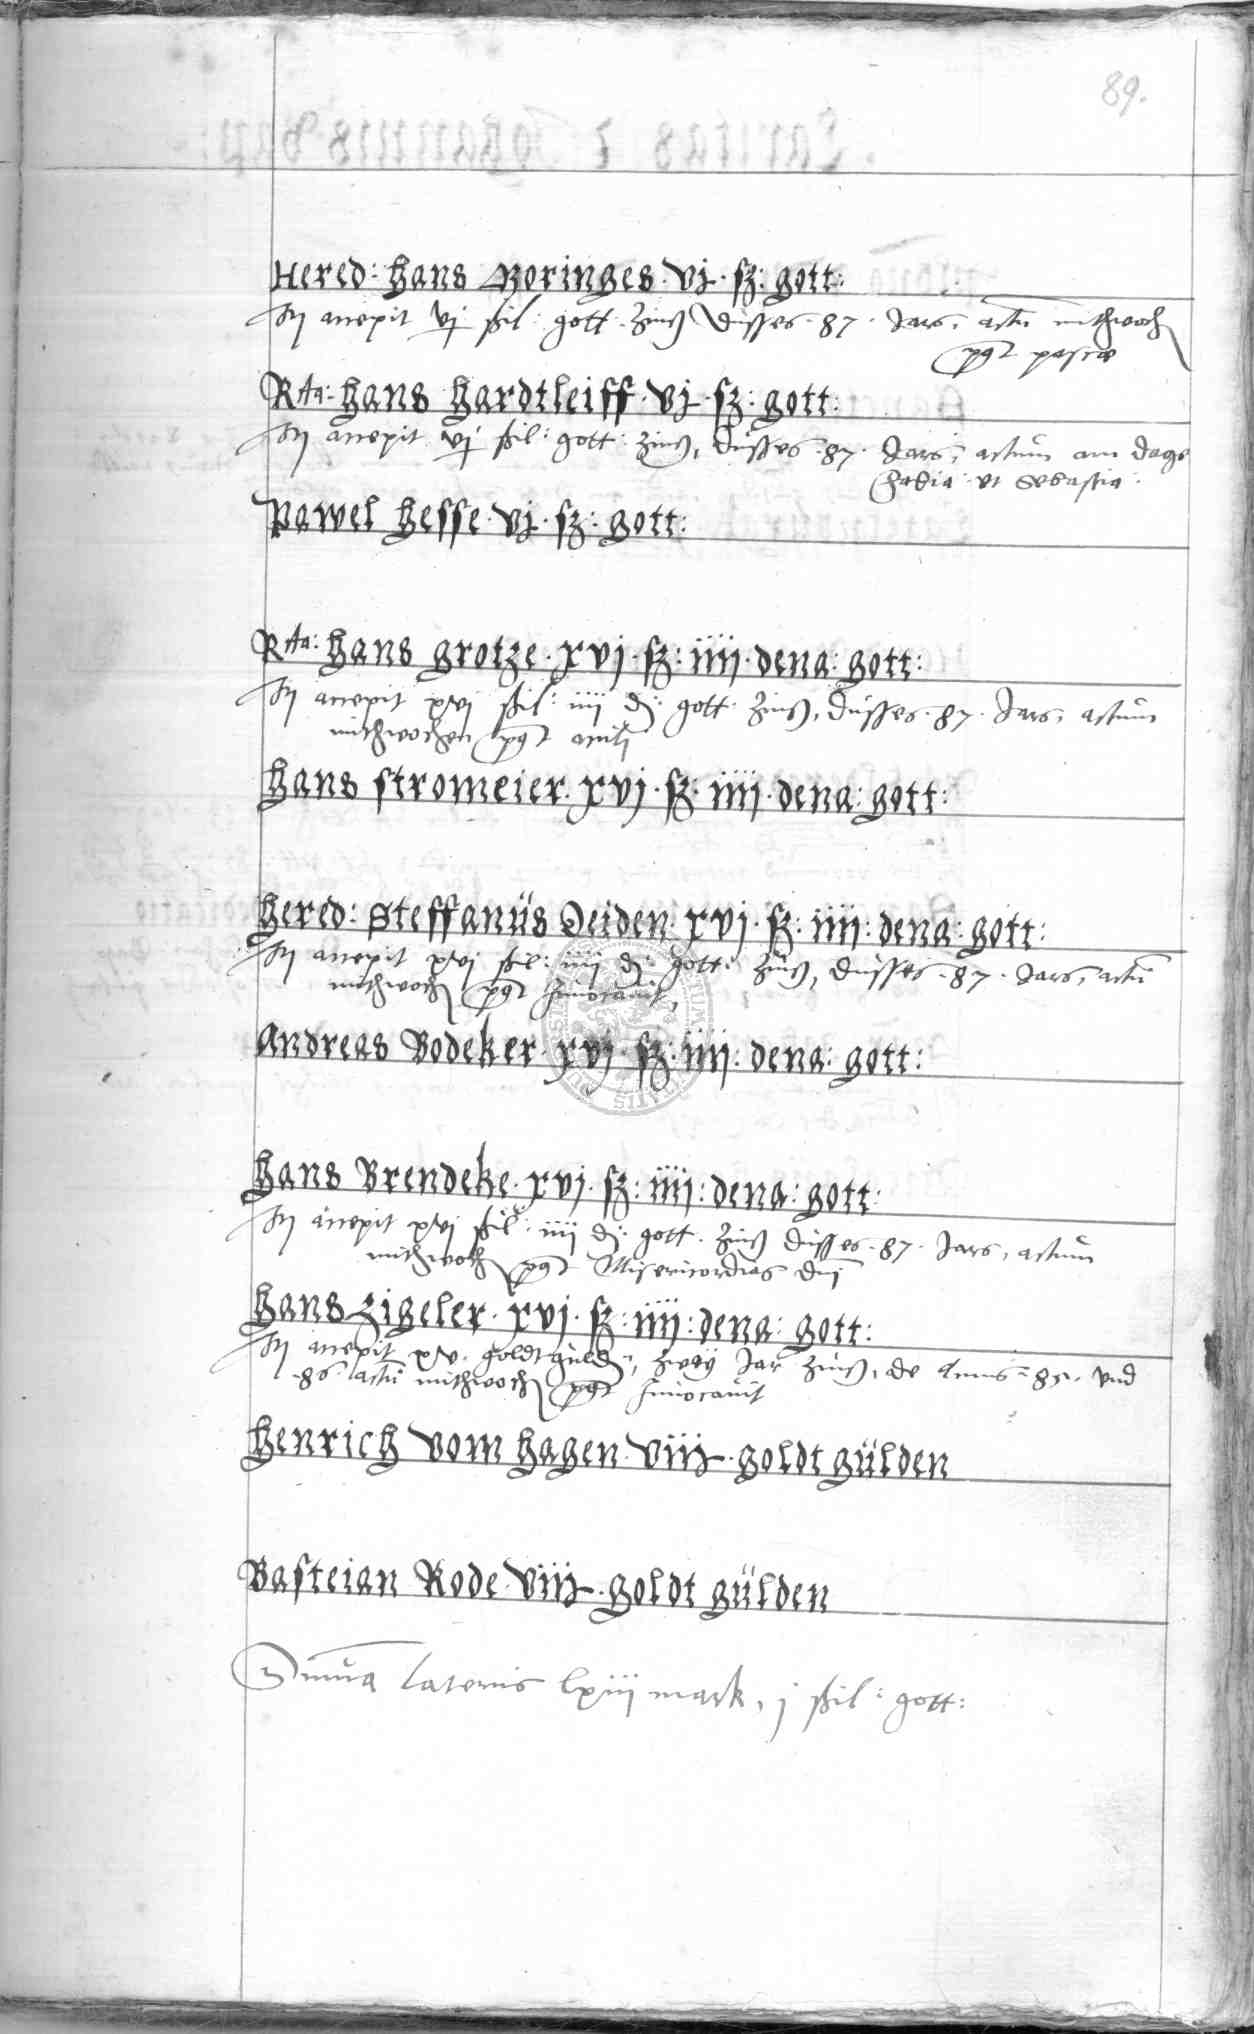 89.
Hered: Hans Noringes · vj · sz: gott:
accepit vj ßil: gott: Zinß dusses · 87 · Jars, actu mithwoch
pascæ
Rta: Hans Hardtleiff · vj · sz: gott:
accepit vj ßil: gott: Zinß, dusses · 87 · Jars, actum am dage
Fabia: et Sebastia:
Pawel Hesse · vj · sz: gott:
Rta: Hans Grotze · xvj · sz: iiij · dena: gott:
accepit xvj ßil: iiij d: gott: Zinß, dusses · 87 · Jars, actum
mithwochen
Hans Stromeier · xvj · sz: iiij · dena: gott:
Hered: Steffanus Deiden · xvj · sz: iiij: dena: gott:
accepit xvj ßil: iiij d: gott: Zinß, dusses · 87 · Jars, actu
mithwoch Invocavit,
Andreas Bodeker · xvj · sz: iiij: dena: gott:
Hans Brendeke · xvj · sz: iiij: dena: gott:
accepit xvj ßil: iiij d: gott: Zinß dusses · 87 · Jars, actum
mithwoch Misericordias dni
Hans Zigeler · xvj · sz: iiij: dena: gott:
accepit xv · goldtguld:, zwey Jar Zinß, de Annis · 85 · und
· 86 · actu mithwoch Invocavit
Henrich vom Hagen · viij · goldt gülden
Basteian Rode · viij · goldt gülden
Summa lateris lxiij mark, j ßil: gott: